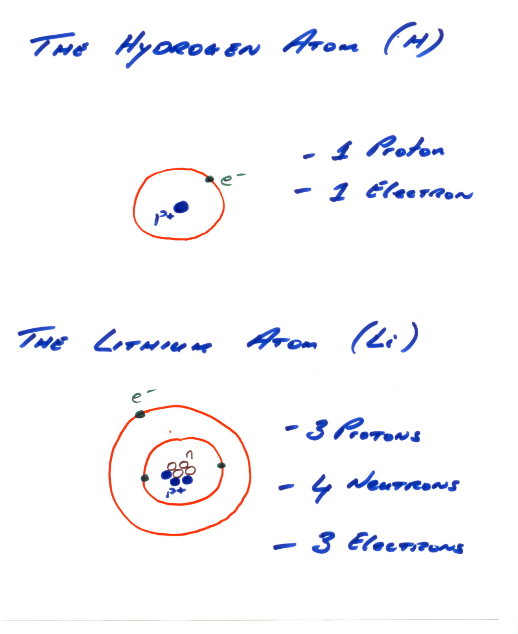 The Hydrogen Atom (H)
- 1 Proton
e-
- 1 Electron
P+
The Lithium Atom (Li)
e-
- 3 Protons
n
- 4 Neutrons
P+
- 3 Electrons